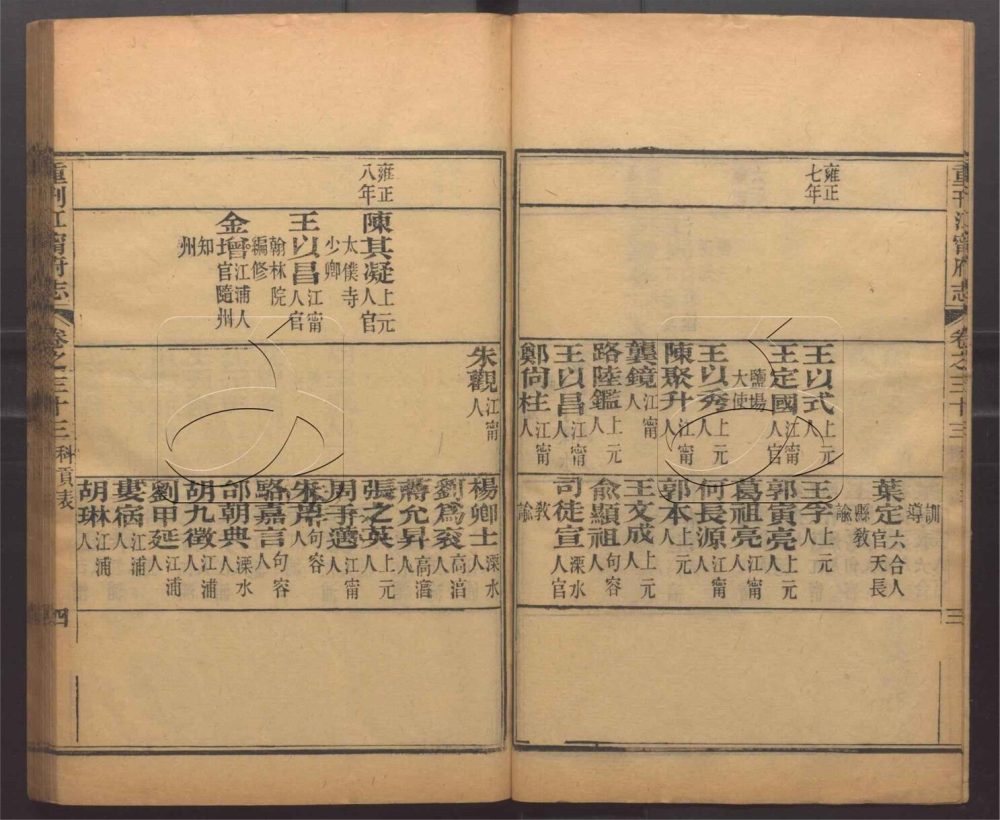 重刊江甯府志
卷之三十三
三
雍正七年
王以式上元人
王定國江甯人官鹽場大使
王以秀上元人
陳聚升江甯人
龔鏡江甯人
路陸鑑上元人
王以昌江甯人
鄭尙柱江甯人
訓導
葉定六合人官天長縣教諭
王李上元人
郭寅亮上元人
葛祖亮江甯人
何長源江甯人
郭本上元人
王文成上元人
俞顯祖句容人
司徒宣溧水人官教諭
雍正八年
陳其凝上元人官太僕寺少卿
王以昌江甯人官翰林院編修
金增江浦人官隨州知州
朱觀江甯人
楊卿士溧水人
劉爲衮高淳人
蔣允昇高淳人
張之英上元人
周于邁江甯人
朱芾句容人
駱嘉言句容人
邰朝典溧水人
胡九徵江浦人
劉甲延江浦人
婁㝛江浦人
胡琳江浦人
重刊江甯府志
卷之三十三
科貢表
四